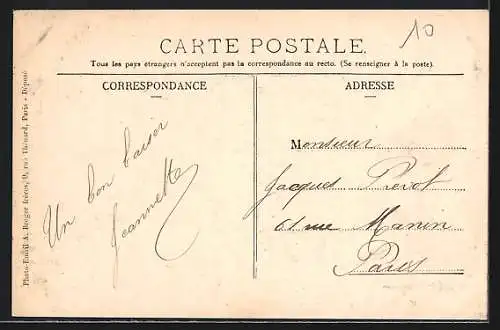 10
CARTE POSTALE.
Tous les pays étrangers n'acceptent pas la correspondance au recto. (Se renseigner à la poste).
CORRESPONDANCE
ADRESSE
Un bon baiser
Jeannette
Monsieur
Jacques Prevot
61 rue Manin
Paris
Photo-Émail Berger frères, 9, rue Thénard, Paris - Déposé